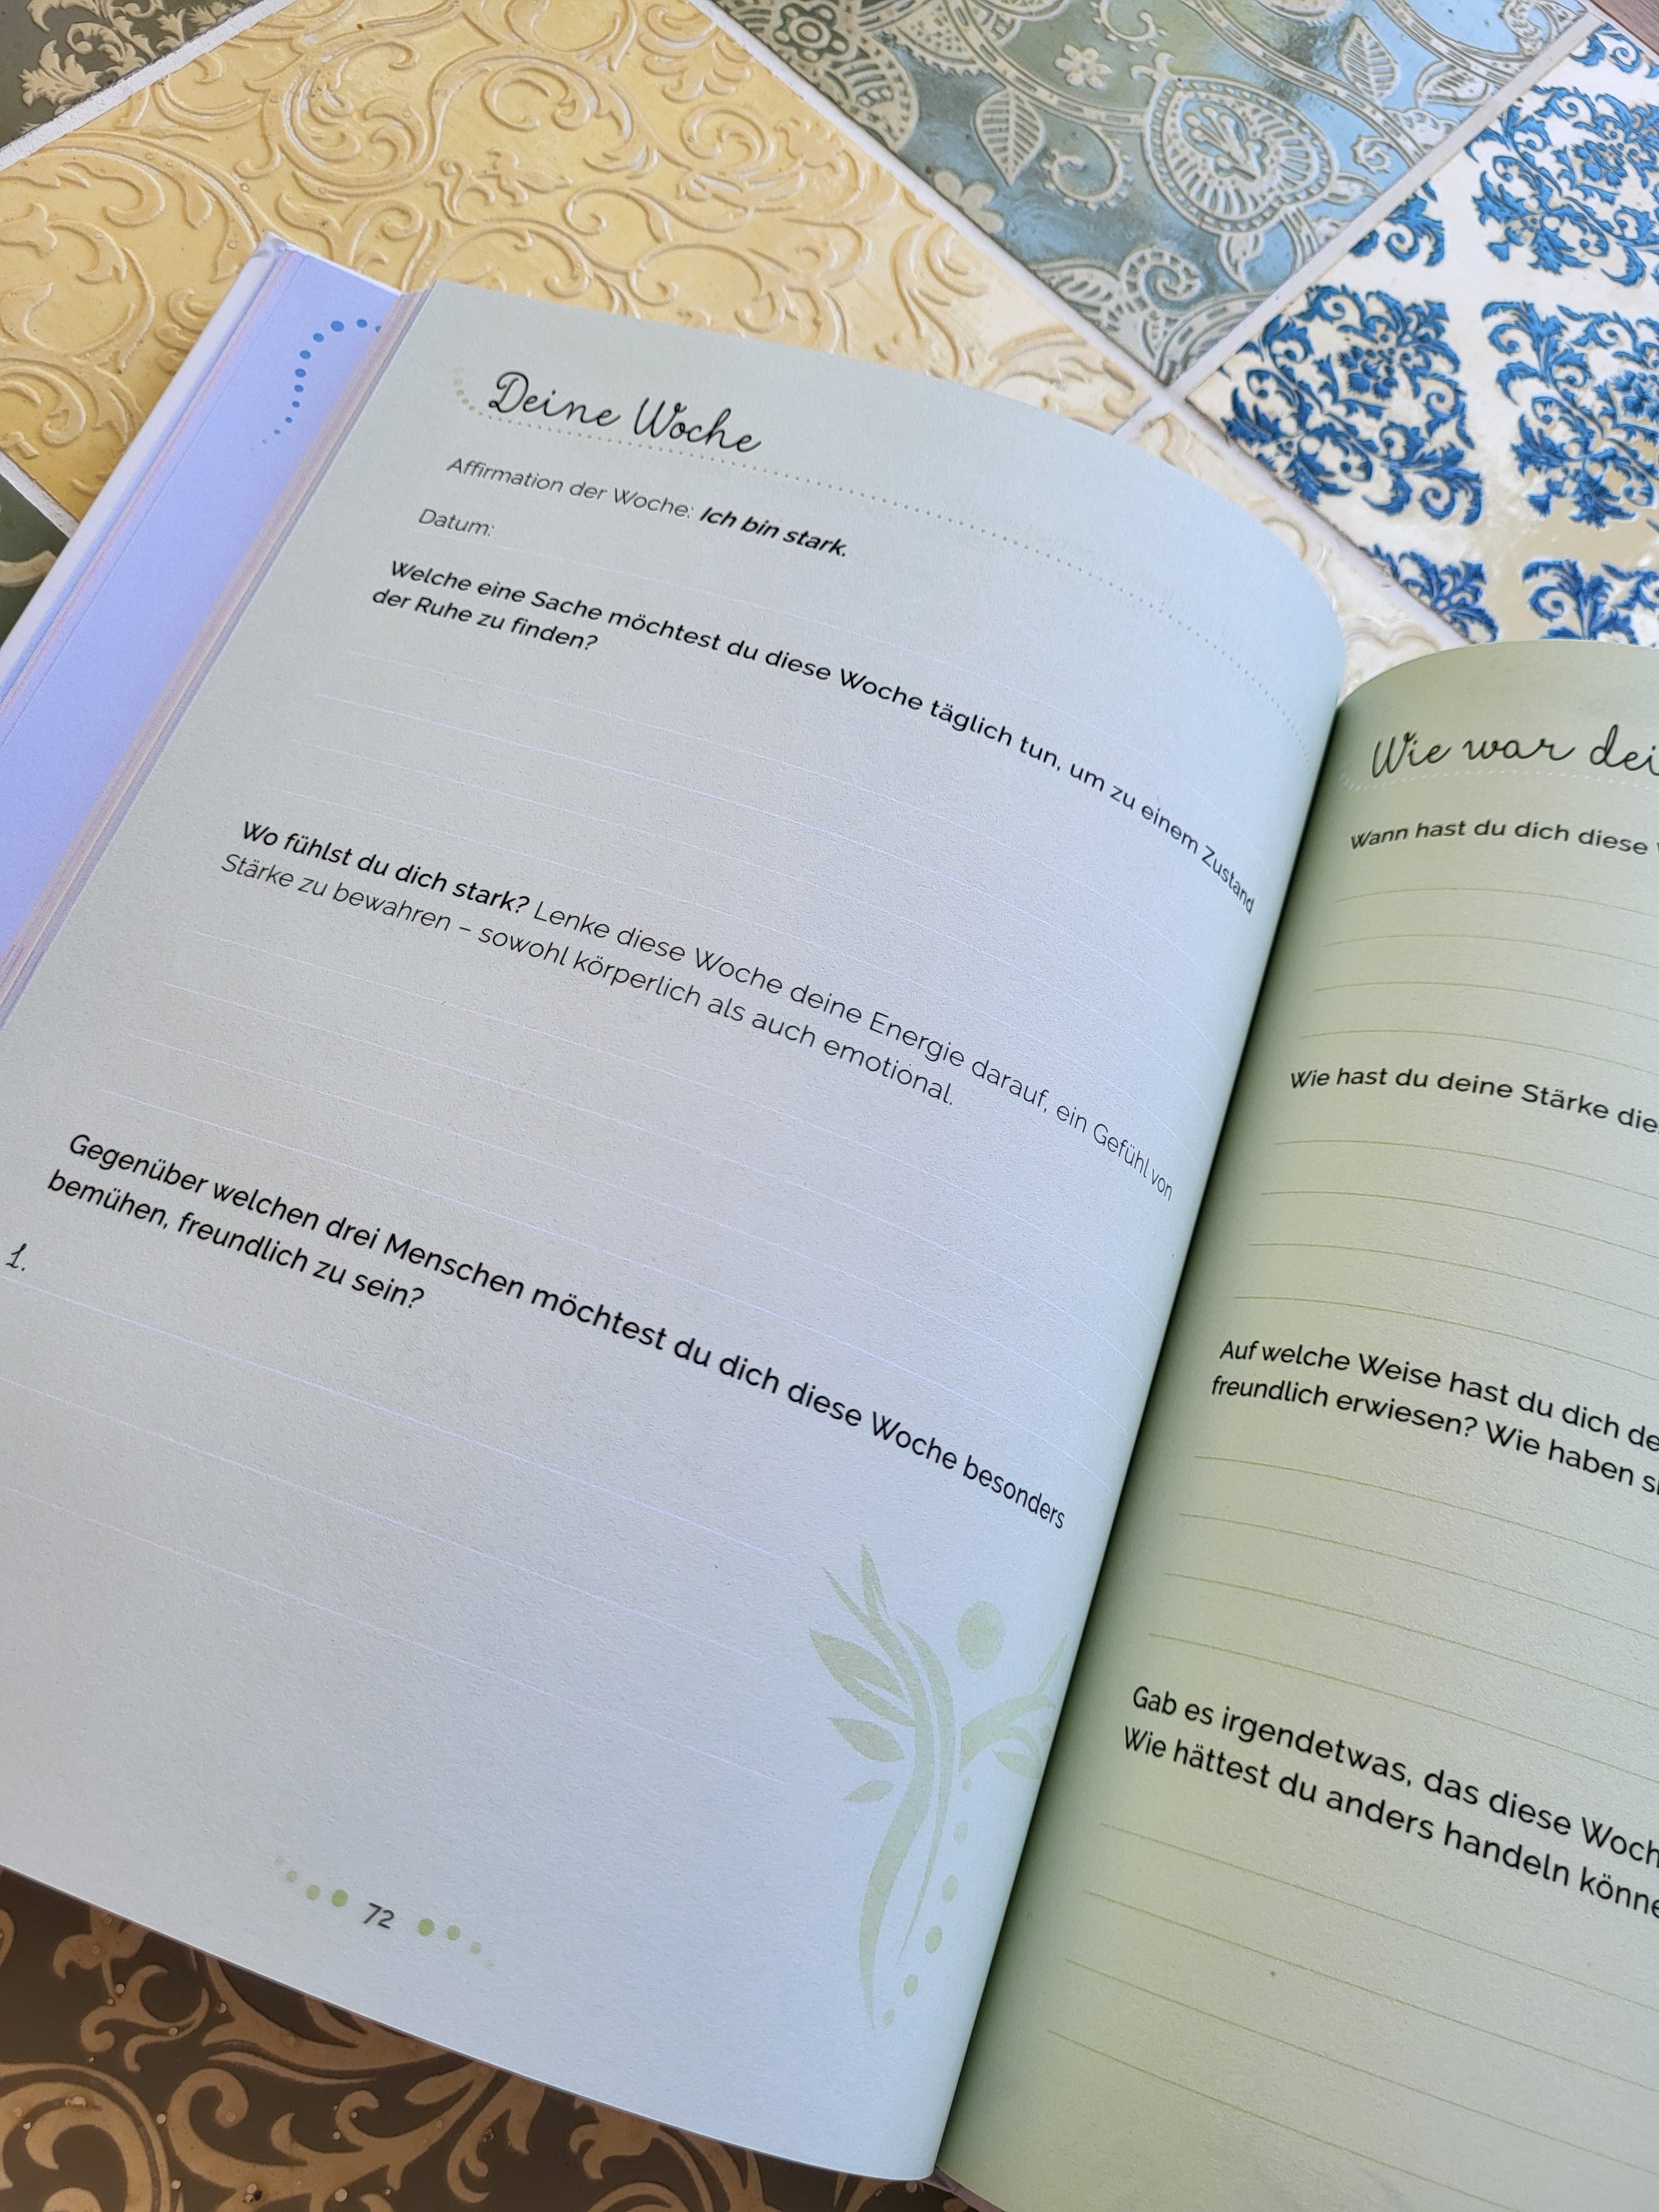 Deine Woche
Affirmation der Woche: Ich bin stark.
Datum:
Welche eine Sache möchtest du diese Woche täglich tun, um zu einem Zustand
der Ruhe zu finden?
Wo fühlst du dich stark? Lenke diese Woche deine Energie darauf, ein Gefühl von
Stärke zu bewahren – sowohl körperlich als auch emotional.
Gegenüber welchen drei Menschen möchtest du dich diese Woche besonders
bemühen, freundlich zu sein?
1.
72
Wie war dei
Wann hast du dich diese
Wie hast du deine Stärke die
Auf welche Weise hast du dich de
freundlich erwiesen? Wie haben si
Gab es irgendetwas, das diese Woch
Wie hättest du anders handeln könne